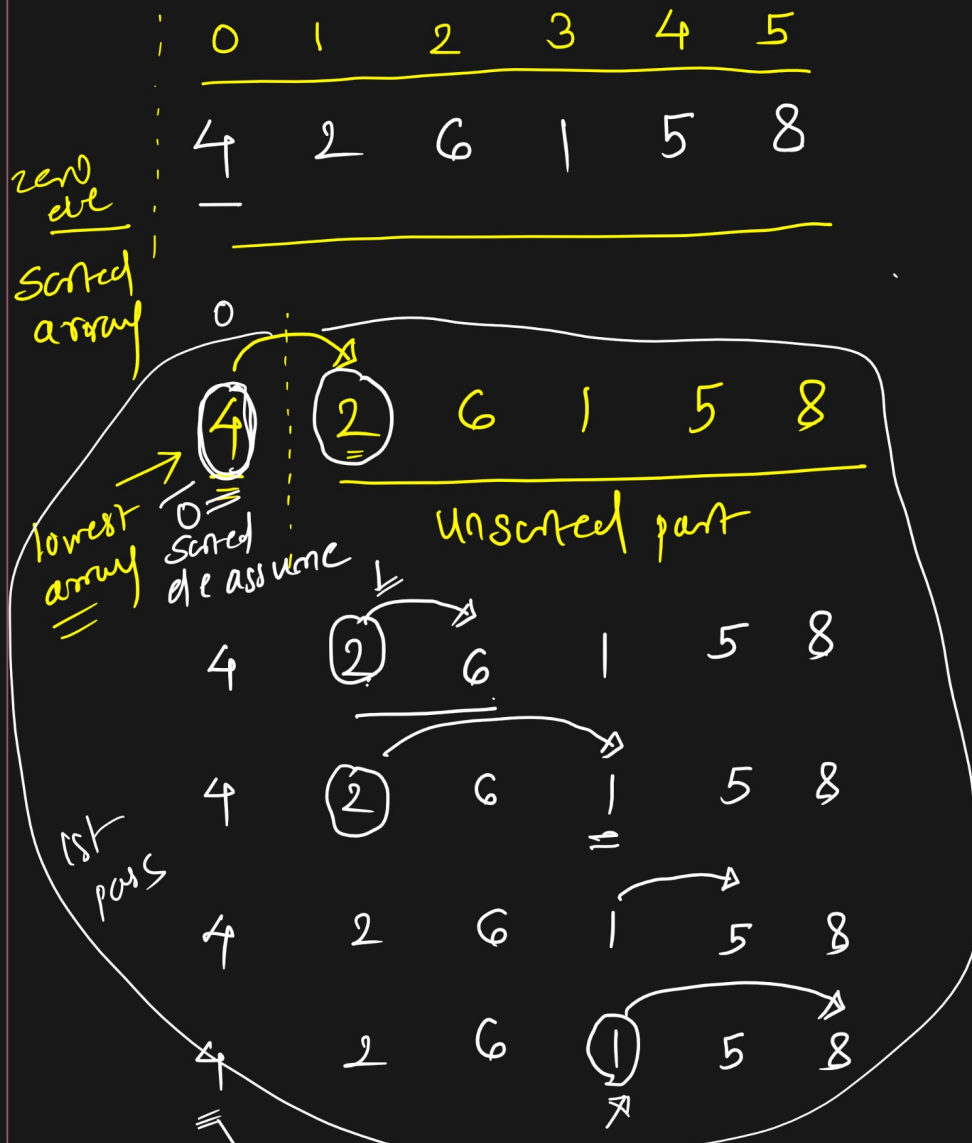 0 1 2 3 4 5
4 2 6 1 5 8
zero
ele
Sorted
array
0
4 2 6 1 5 8
lowest
array
0
sorted
ele assume
Unsorted part
4 2 6 1 5 8
4 2 6 1 5 8
1st
pass
4 2 6 1 5 8
4 2 6 1 5 8